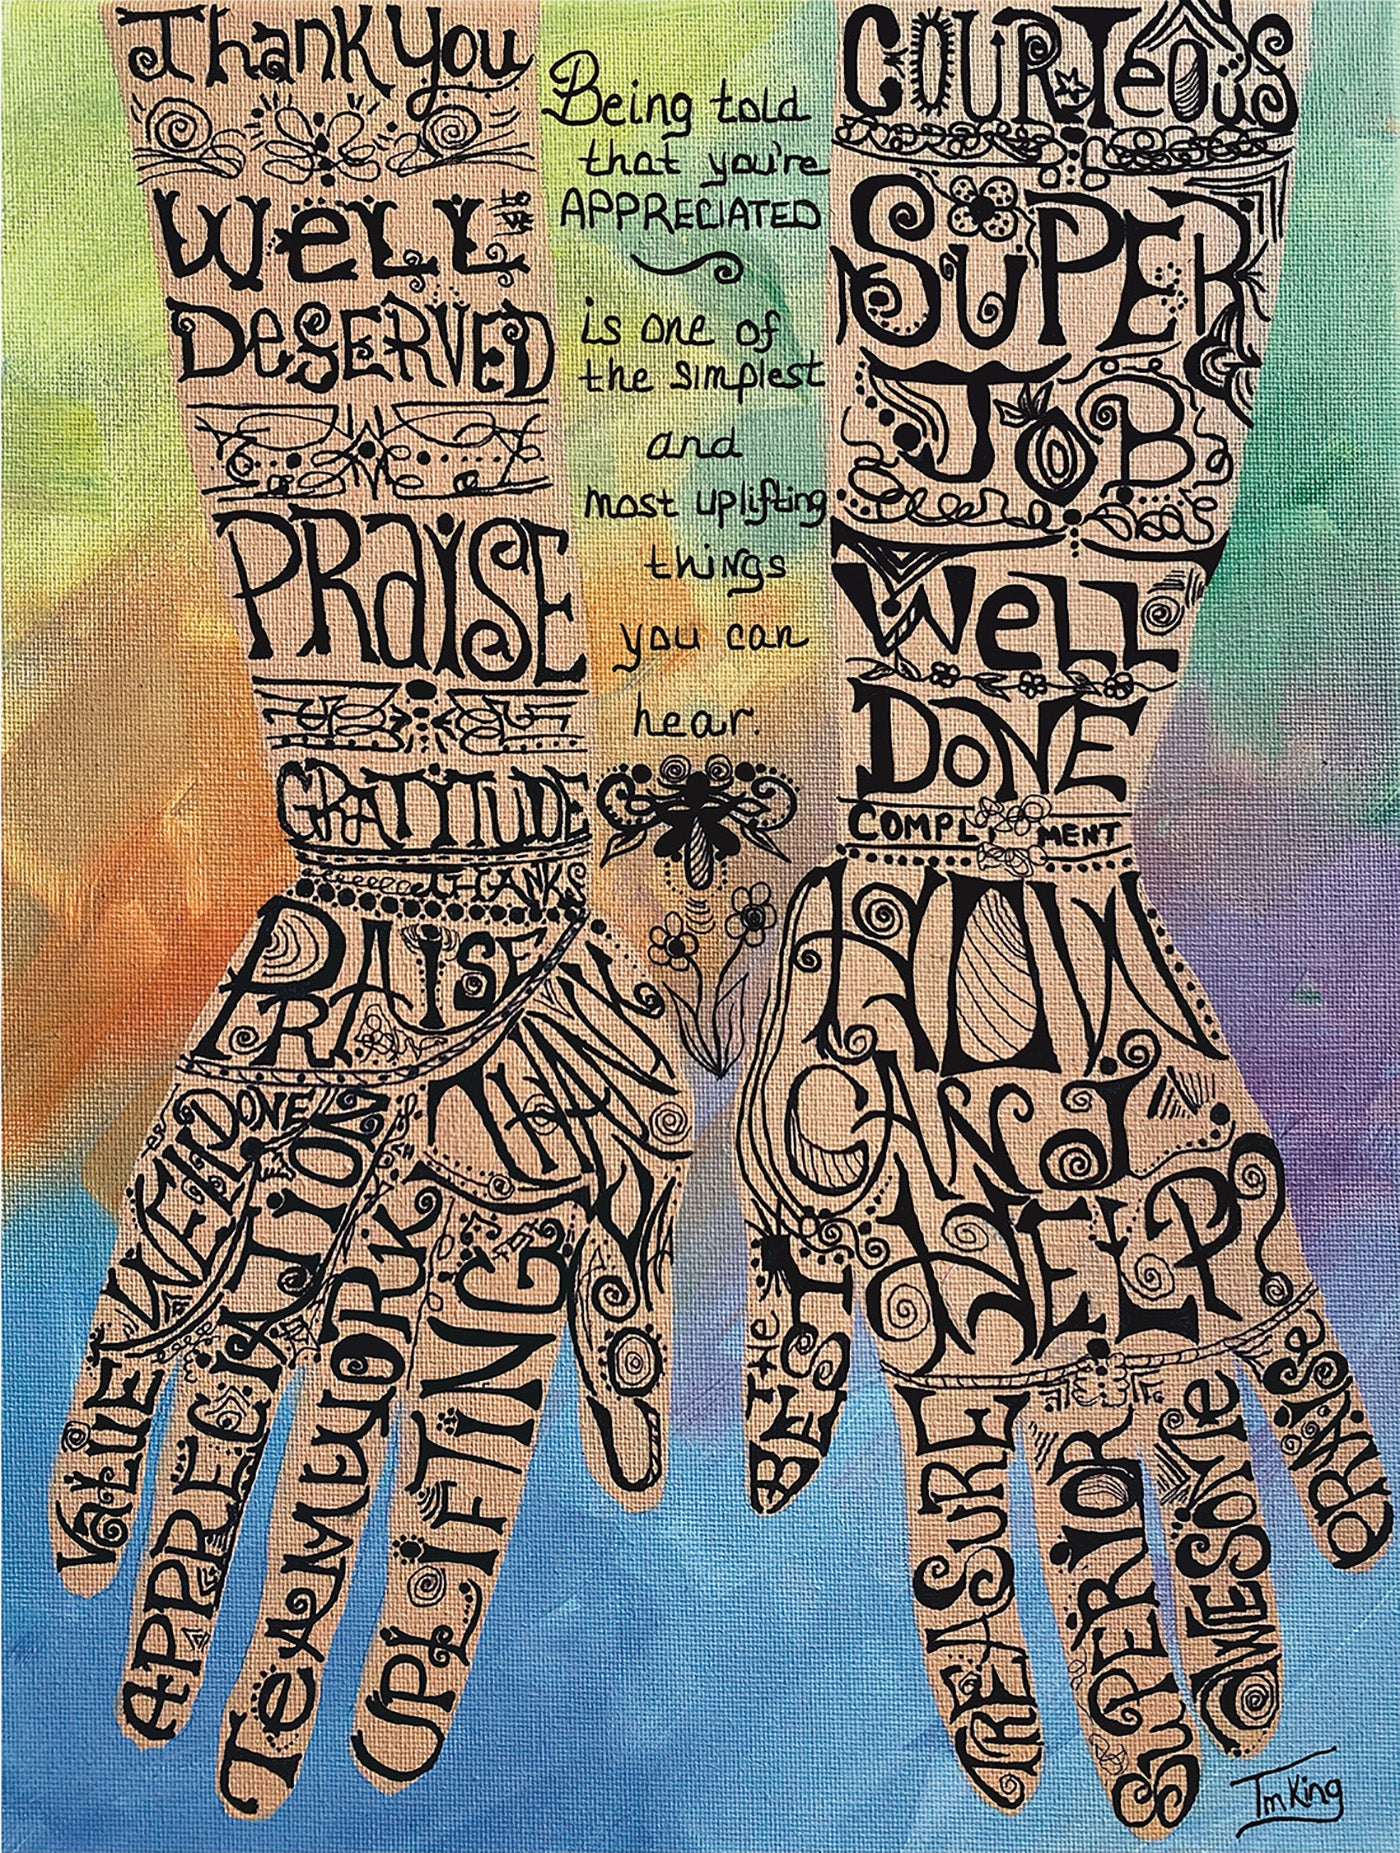 Thank You
Well
Deserved
PRaiSE
GRATITUDE
THANKS
PRAISE
THANK
YOU
WELL DONE
VALUE
APPRECIATION
TEAMWORK
UPLIFTING
Being told
that you're
APPRECIATED
is one of
the simplest
and
most uplifting
things
you can
hear.
COURTeous
SUPER
JOB
Well
DONE
COMPLIMENT
HOW
CAN I
HELP?
THE
BEST
TREASURE
SUPERIOR
AWESOME
PRAISE
TmKing